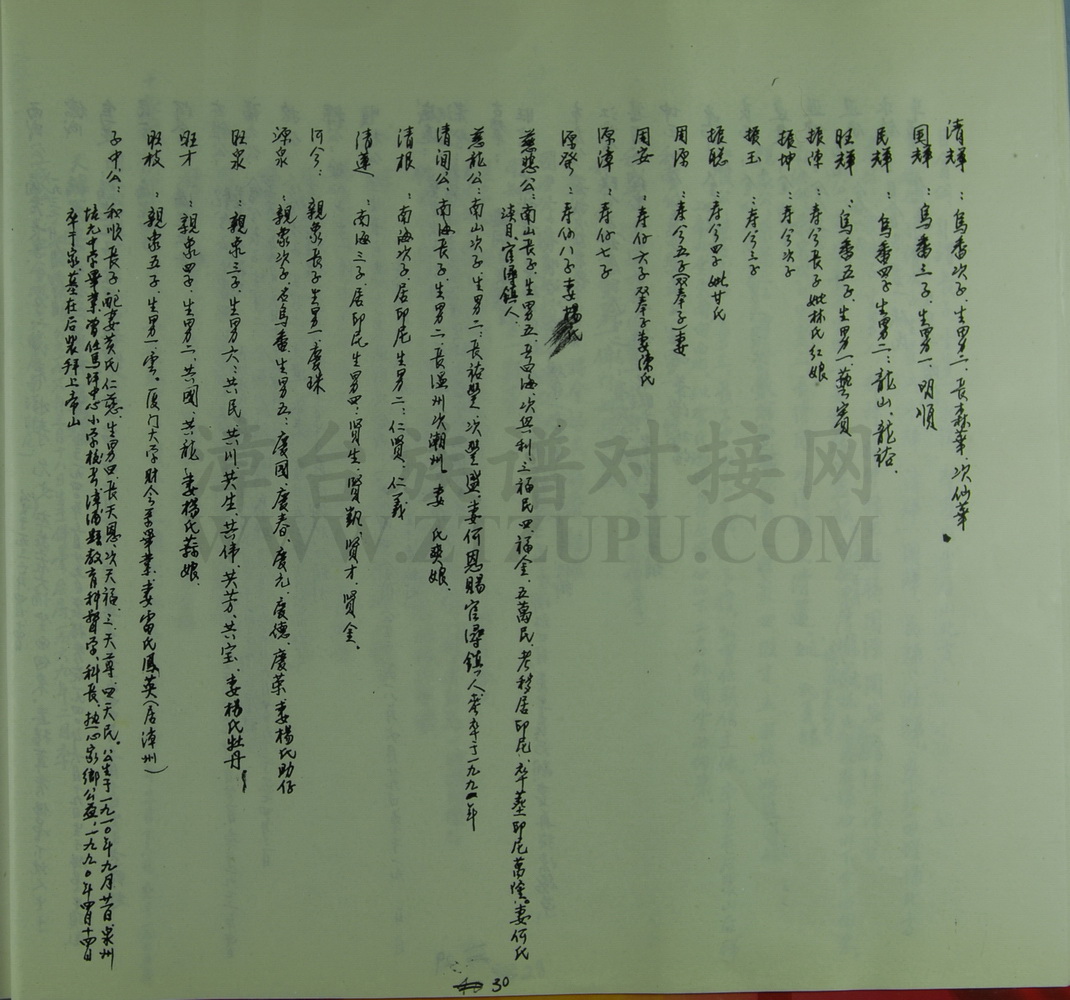 清輝：烏番次子，生男二，長森華，次仙華。
國輝：烏番三子，生男一，明順
民輝：烏番四子，生男二：龍山、龍裕、
旺輝：烏番五子，生男一藝賓
振漳：寿兮長子妣林氏紅娘
振坤：寿兮次子
振玉：寿兮三子
振聪：寿兮四子妣甘氏
周源：寿兮五子(双奉子)妻
周安：寿仔六子双奉子妻陳氏
源漳：寿仔七子
源發：寿仔八子妻楊氏
慈愁公：南山長子，生男五，長四海、次與利、三福民、四福金、五萬民，考移居印尼、卒葬印尼萬隆。妻何氏
淡目官潯鎮人、
慈龍公：南山次子，生男二、長裕豐、次豐盛、妻何恩賜官潯鎮人考卒于一九九一年
清润公，南海長子，生男二長温州次潮州，妻 氏爽娘、
清根：南海次子居印尼生男二：仁賢、仁義
清蓮：南海三子，居印尼生男四：賢生、賢凱、賢才、賢金。
河兮：親象長子生男一慶珠
源泉：親象次子，名烏番，生男五：慶國、慶春、慶元、慶德、慶荣，妻楊氏助仔
旺泉：親象三子，生男六：共民、共川、共生、共伟、共芳、共宝、妻楊氏牡丹
旺才：親象四子，生男二、共國、共龍，妻楊氏蒜娘、
旺枝：親象五子，生男一雲。厦门大学财会系畢業，妻雷氏鳳英(居漳州)
子中公：和順長子，配妻黄氏仁慈，生男四長天恩、次天福、三、天尊、四天民。公生于一九一〇年九月廿日，泉州
培元中学畢業曾任馬坪中心小学校長漳浦縣教育科督学、科長，热心家鄉公益，一九九〇年四月十四日
卒于家，墓在后裝拜上帝山
30
潭台族谱对接网
WWW.ZTZUPU.COM